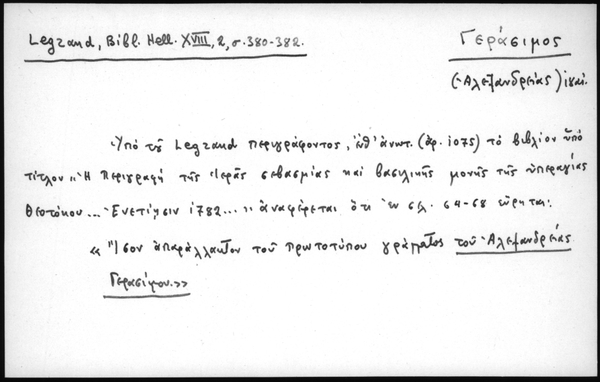 Legrand, Bibl. Hell. XVIII, 2, σ. 380-382.
Γεράσιμος
(Ἀλεξανδρείας)
Ὑπό τοῦ Legrand περιγράφοντος, ἔνθ' ἀνωτ. (ἀρ. 1075) τό βιβλίον ὑπό
τίτλον «Ἡ Περιγραφή τῆς ἱερᾶς σεβασμίας καί βασιλικῆς μονῆς τῆς ὑπεραγίας
Θεοτόκου... Ἐνετίησιν 1782...» ἀναφέρεται ὅτι ἐν σελ. 64-68 εὕρηται:
«Ἴσον ἀπαράλλακτον τοῦ πρωτοτύπου γράμματος τοῦ Ἀλεξανδρείας
Γερασίμου.»